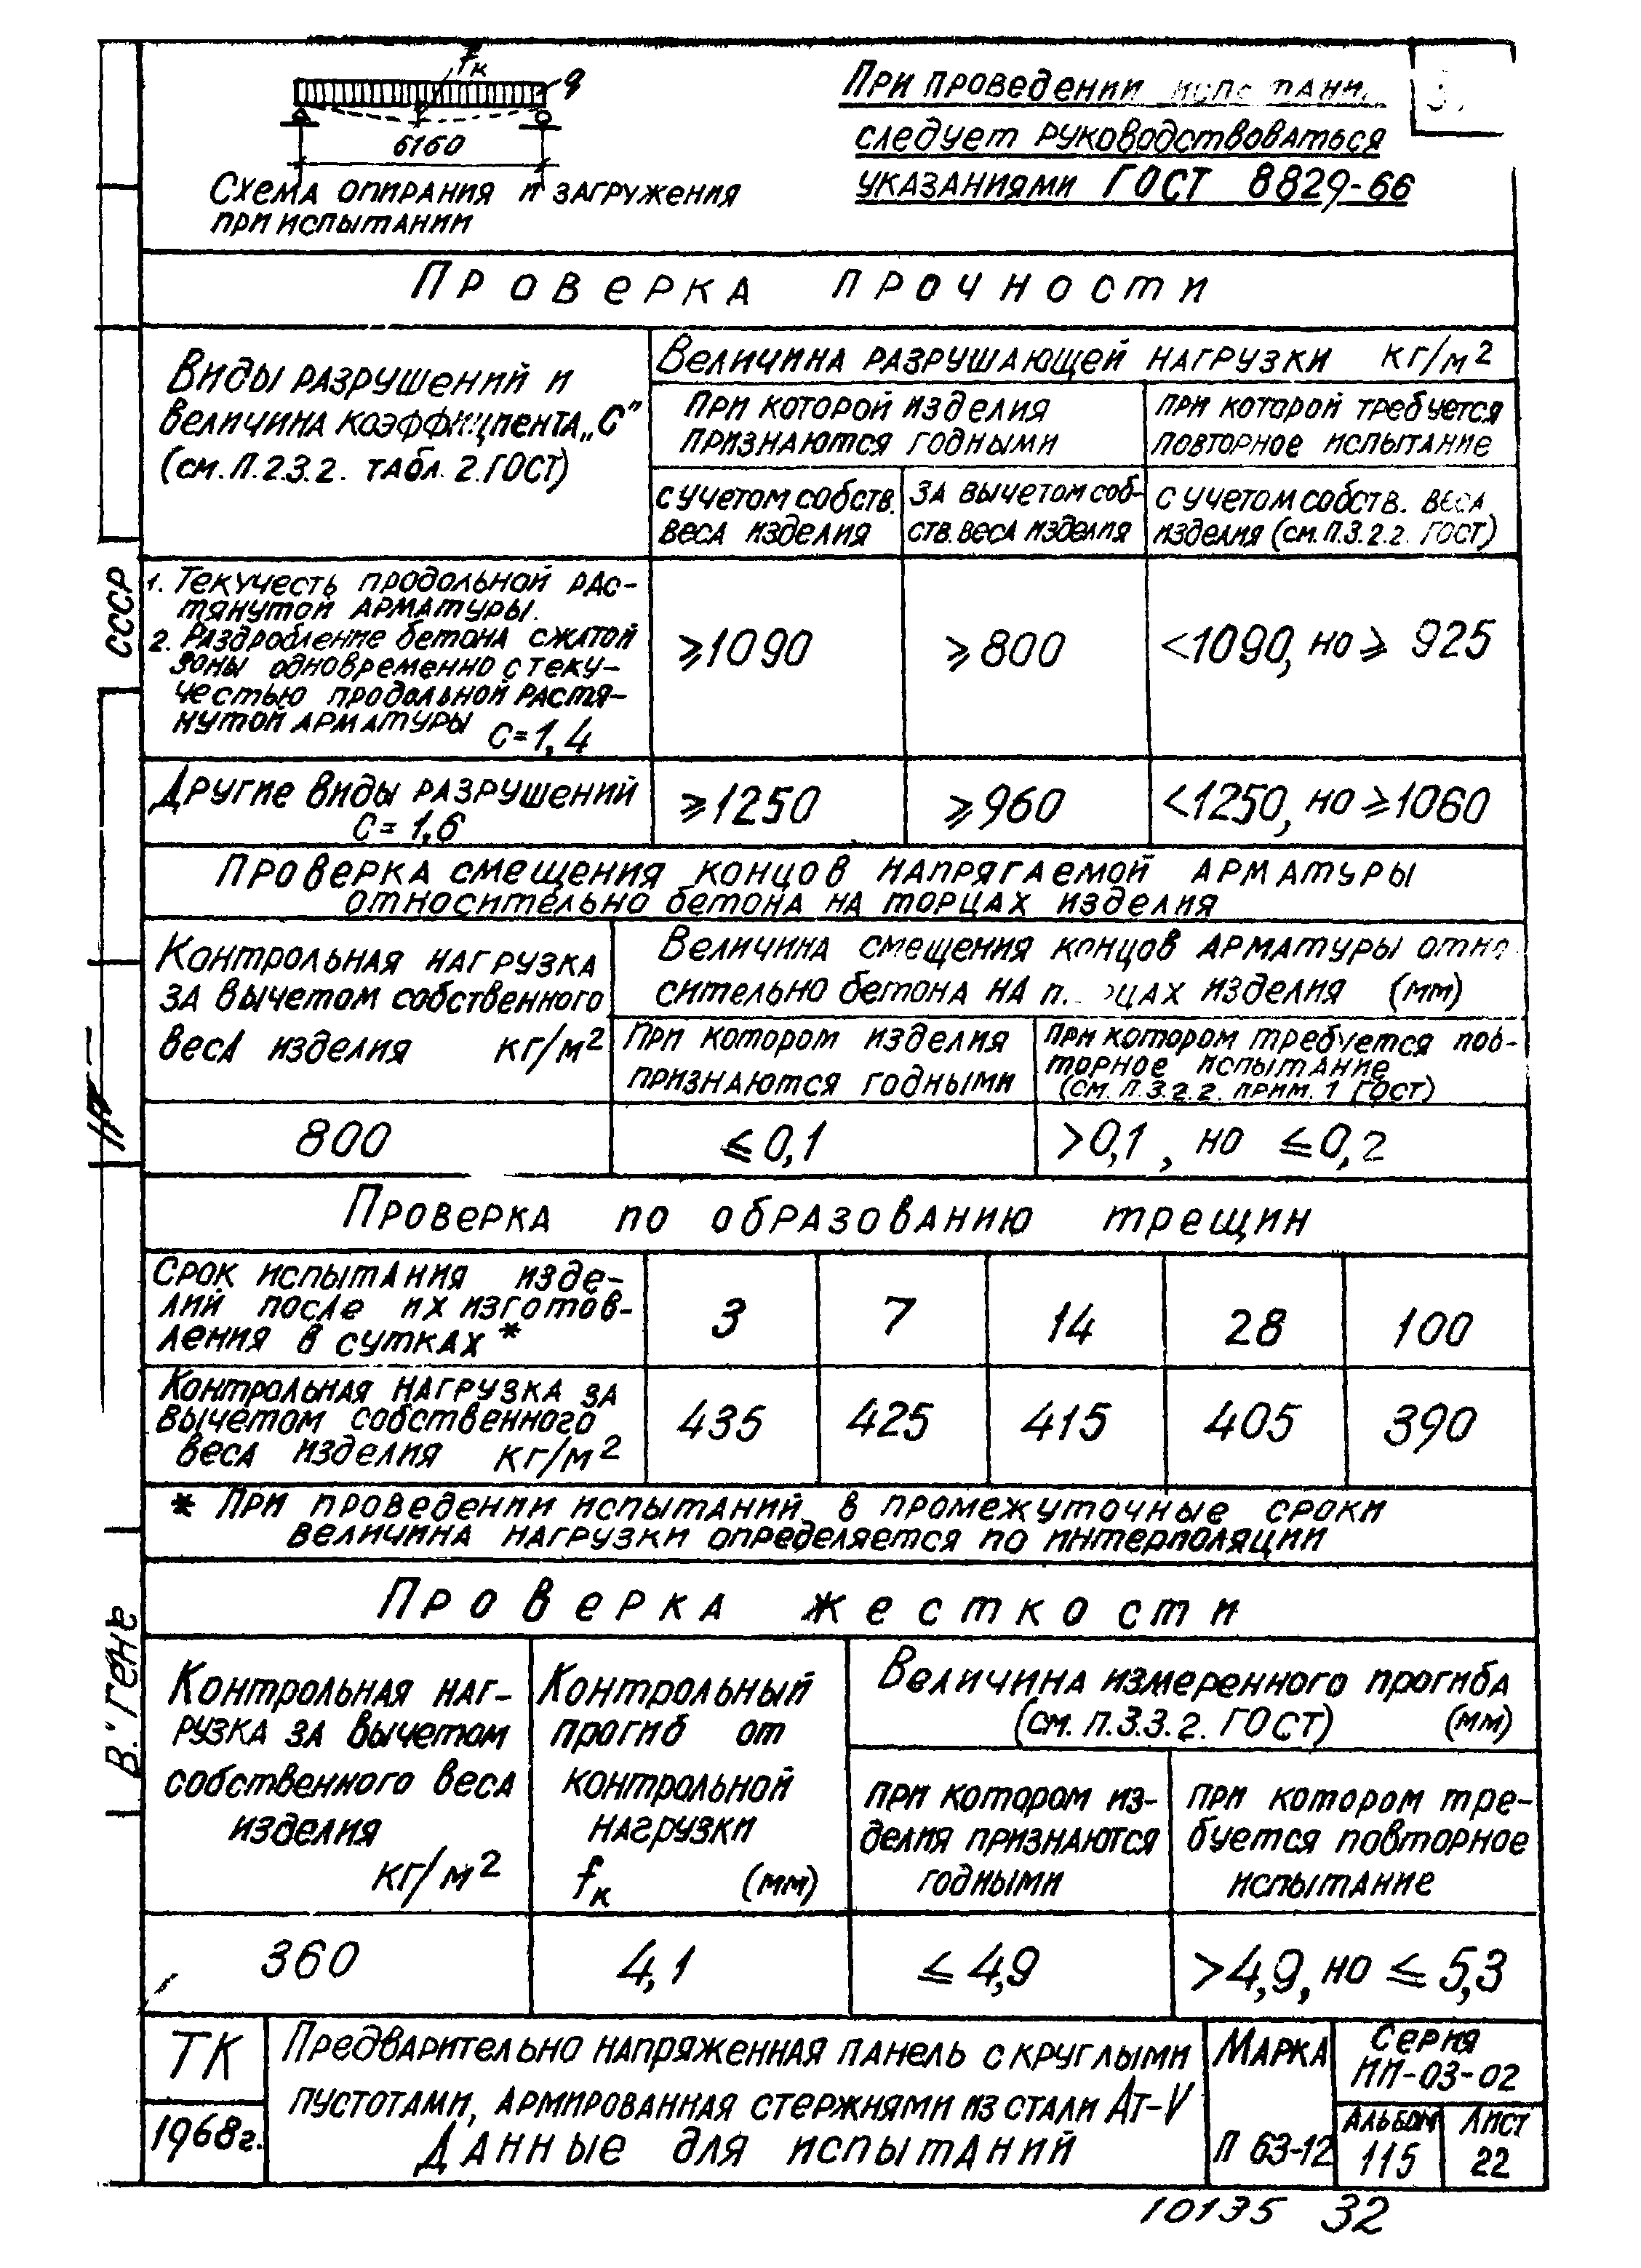 fк
q
6160
Схема опирания и загружения
при испытании
При проведении
следует руководствоваться
указаниями ГОСТ 8829-66
Проверка прочности
Виды разрушений и
величина коэффициента „С"
(см. п. 2.3.2. табл. 2. ГОСТ)
Величина разрушающей нагрузки кг/м²
при которой изделия
признаются годными
при которой требуется
повторное испытание
с учетом собств.
веса изделия
за вычетом соб-
ств. веса изделия
с учетом собств. веса
изделия (см. п.3.2.2. ГОСТ)
1. Текучесть продольной рас-
тянутой арматуры.
2. Раздробление бетона сжатой
зоны одновременно с теку-
честью продольной растя-
нутой арматуры
С=1,4
⩾1090
⩾800
<1090, но ⩾ 925
Другие виды разрушений
С=1,6
⩾1250
⩾960
<1250, но ⩾1060
Проверка смещения концов напрягаемой арматуры
относительно бетона на торцах изделия
Контрольная нагрузка
за вычетом собственного
веса изделия кг/м²
Величина смещения концов арматуры отно
сительно бетона на изделия (мм)
При котором изделия
признаются годными
При котором требуется пов-
торное испытание
(см. п.3.2.2. прим. 1 ГОСТ)
800
⩽0,1
>0,1, но ⩽0,2
Проверка по образованию трещин
Срок испытания изде-
лий после их изготов-
ления в сутках *
3
7
14
28
100
Контрольная нагрузка за
вычетом собственного
веса изделия кг/м²
435
425
415
405
390
* При проведении испытаний в промежуточные сроки
величина нагрузки определяется по интерполяции
Проверка жесткости
Контрольная наг-
рузка за вычетом
собственного веса
изделия
кг/м²
Контрольный
прогиб от
контрольной
нагрузки
fк (мм)
Величина измеренного прогиба
(см. п.3.3.2. ГОСТ) (мм)
при котором из-
делия признаются
годными
при котором тре-
буется повторное
испытание
360
4,1
⩽ 4,9
>4,9, но ⩽ 5,3
ТК
1968г.
Предварительно напряженная панель с круглыми
пустотами, армированная стержнями из стали Ат-V
Данные для испытаний
Марка
П 63-12
Серия
ИИ-03-02
Альбом
115
Лист
22
10135 32
СССР